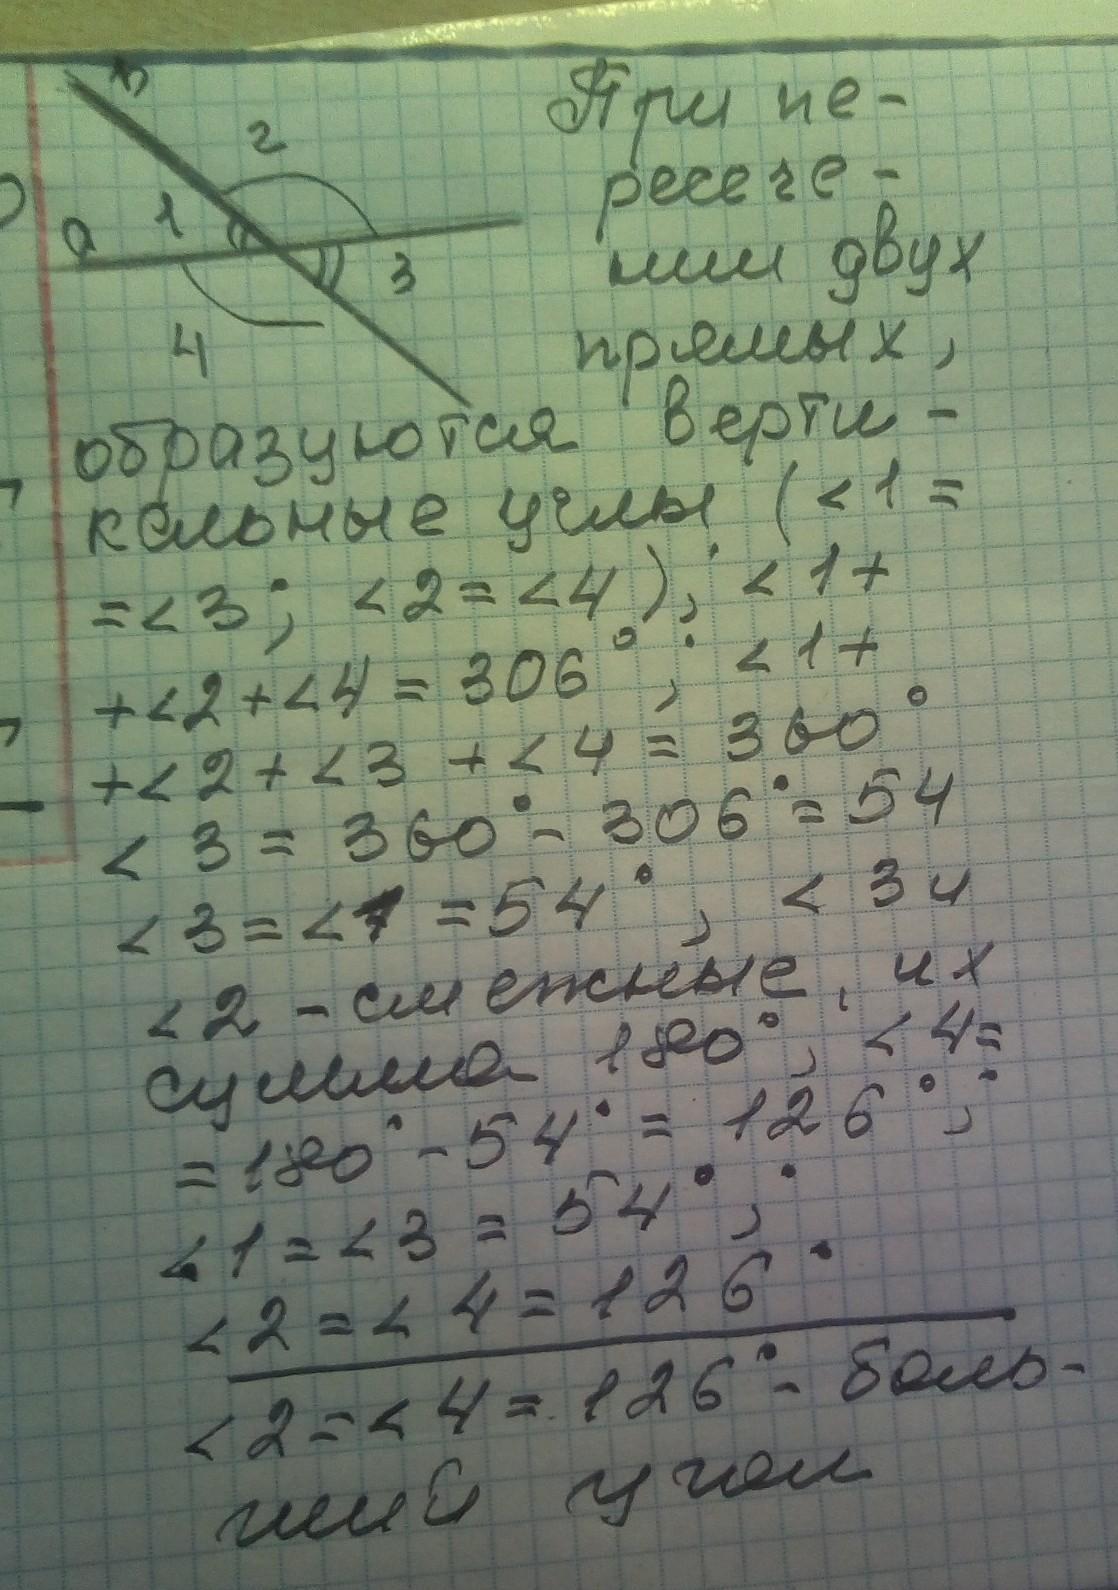 в
2
При пе-
ресече-
а 1
нии двух
3
4
прямых,
образуются верти-
кальные углы (<1=
=<3; <2=<4); <1+
+<2+<4=306°; <1+
+<2+<3+<4=360°
<3=360°-306°=54
<3=<1=54°, <3 и
<2 - смежные, их
сумма 180°, <4=
=180°-54°=126°;
<1=<3=54°;
<2=<4=126°
<2=<4=126°- боль-
ший угол